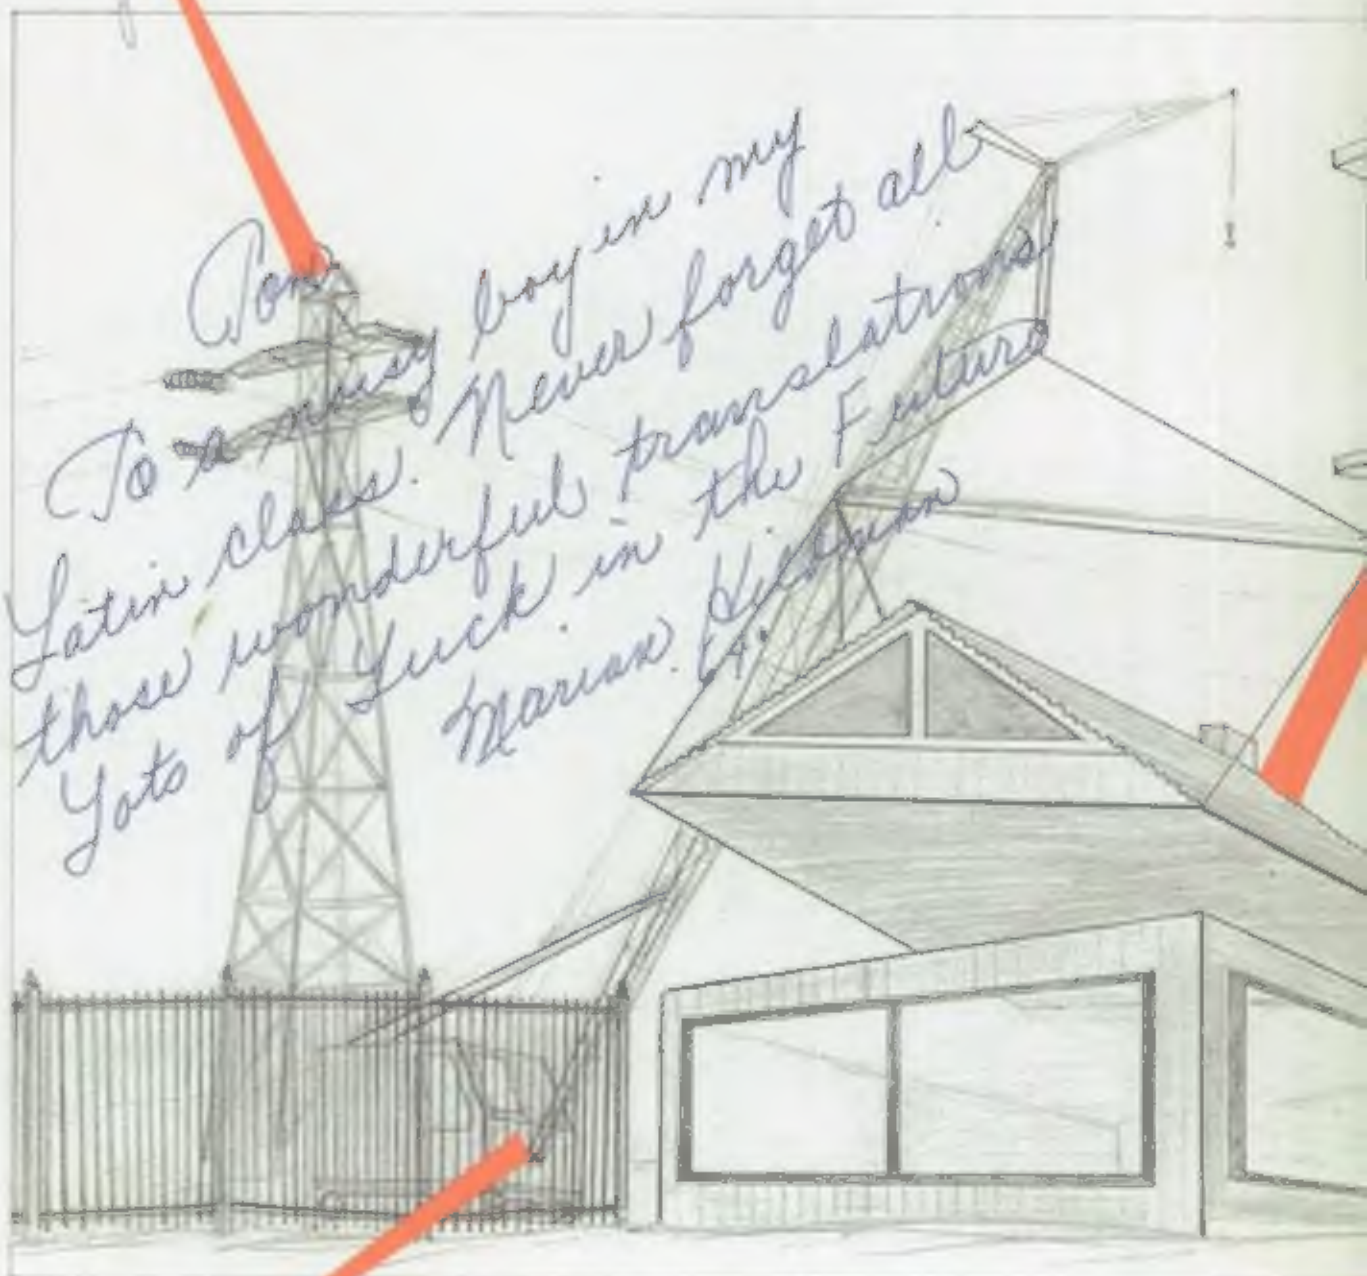 Tom,
To a noisy boy in my
Latin class. Never forget all
those wonderful translations
Lots of Luck in the Future
Marian